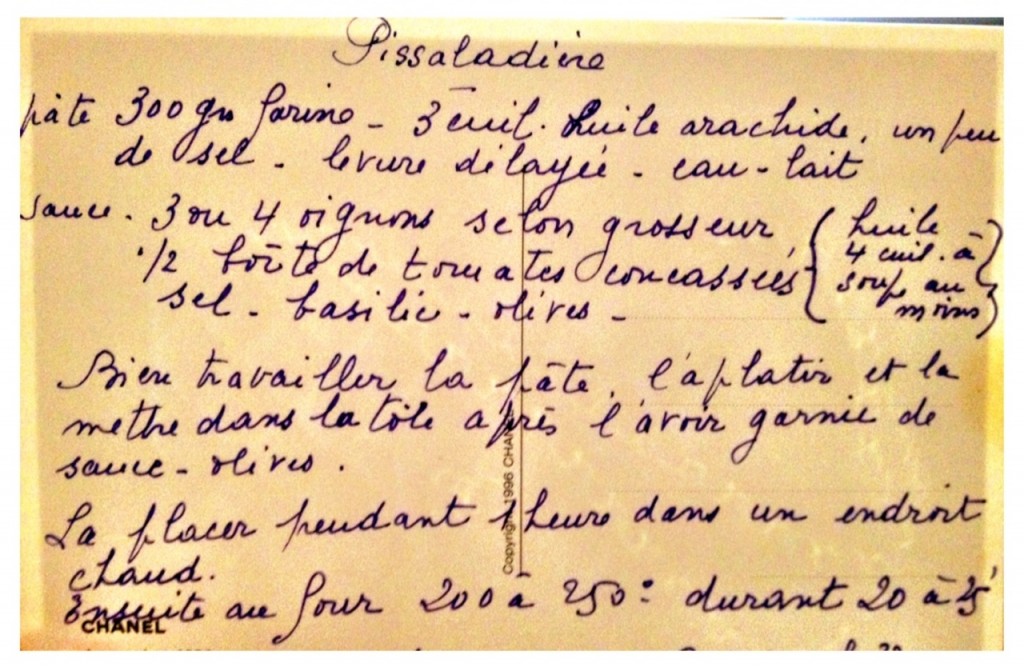 Pissaladière
pâte 300 gr farine - 3 cuil. huile arachide, un peu
de sel - levure délayée - eau - lait
sauce. 3 ou 4 oignons selon grosseur
1/2 boîte de tomates concassées
sel - basilic - olives -
huile
4 cuil. à
soup au
moins
Bien travailler la pâte, l'aplatir et la
mettre dans la tôle après l'avoir garnie de
sauce - olives.
La placer pendant 1 heure dans un endroit
chaud.
Ensuite au four 200 à 250° durant 20 à 25'
CHANEL
Copyright 1996 CHA